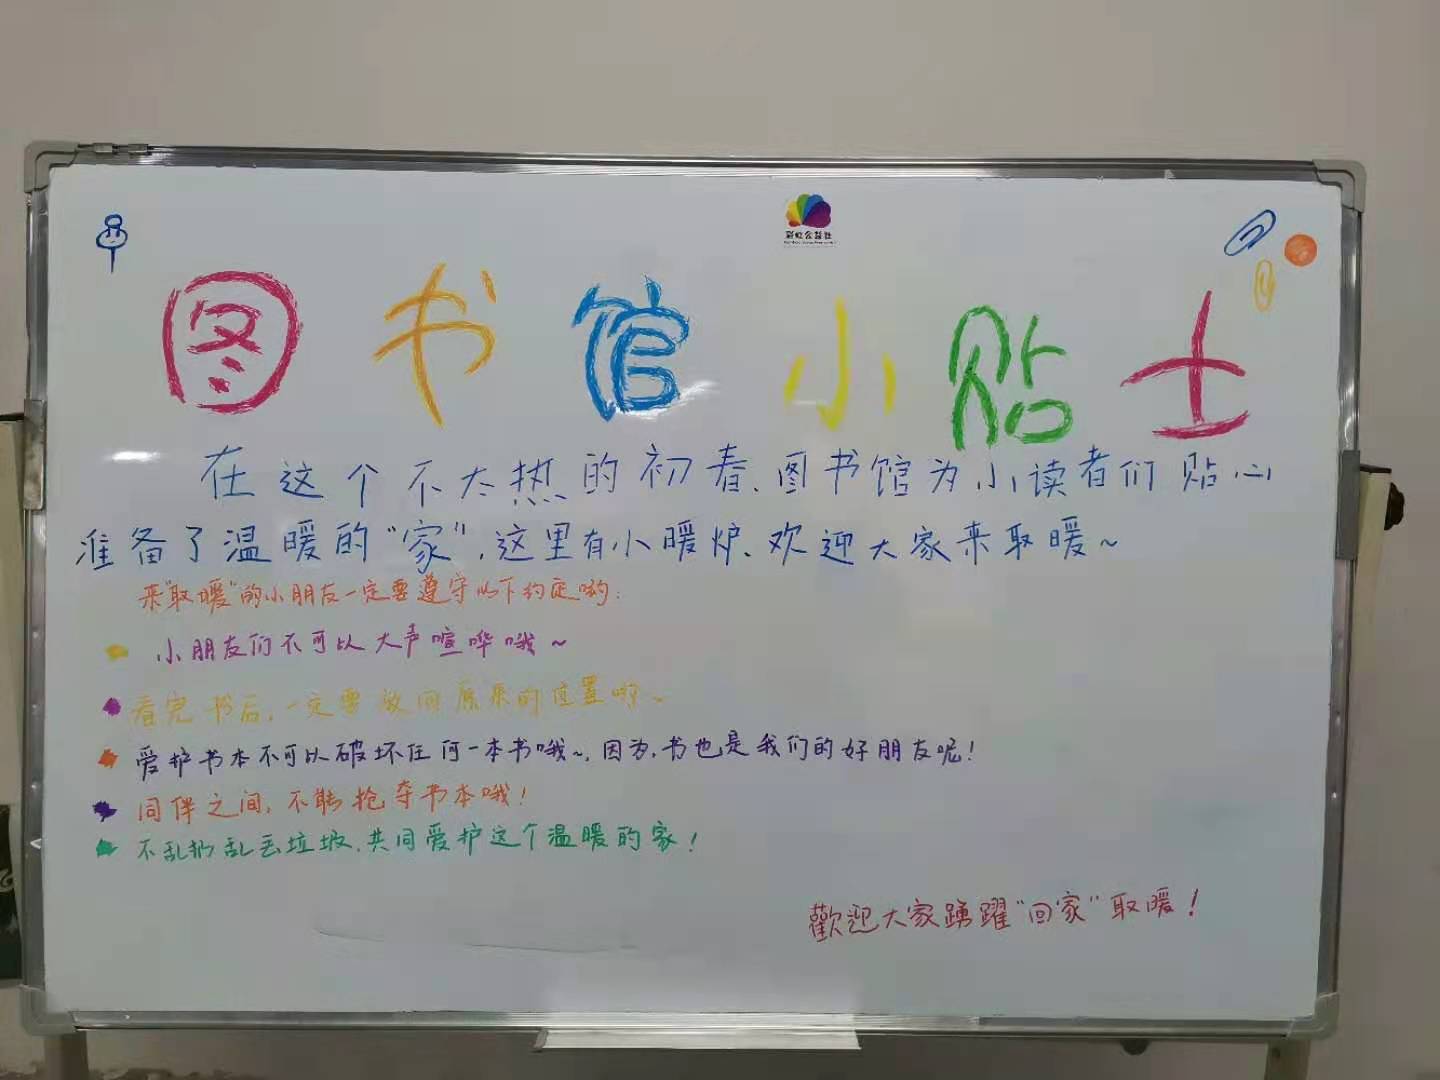 彩虹公益社
图书馆小贴士
在这个不太热的初春、图书馆为小读者们贴心
准备了温暖的“家”,这里有小暖炉、欢迎大家来取暖~
来“取暖”的小朋友一定要遵守以下约定哟:
小朋友们不可以大声喧哗哦~
看完书后,一定要放回原来的位置哟~
爱护书本不可以破坏任何一本书哦~,因为,书也是我们的好朋友呢!
同伴之间,不能抢夺书本哦!
不乱扔乱丢垃圾,共同爱护这个温暖的家!
歡迎大家踴躍“回家”取暖!